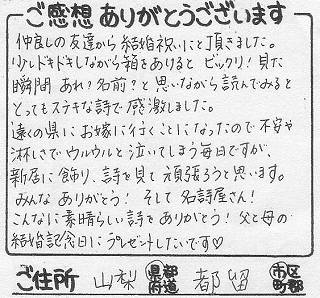 ご感想 ありがとうございます
仲良しの友達から結婚祝いにと頂きました。
少しドキドキしながら箱をあけると ビックリ! 見た
瞬間 あれ?名前?と思いながら読んでみると
とってもステキな詩で感激しました。
遠くの県にお嫁に行くことになったので不安や
淋しさでウルウルと泣いてしまう毎日ですが、
新居に飾り、詩を見て頑張ろうと思います。
みんな ありがとう! そして 名詩屋さん!
こんなに素晴らしい詩をありがとう! 父と母の
結婚記念日にプレゼントしたいです♡
ご住所 山梨 県都府道 都留 市区町郡